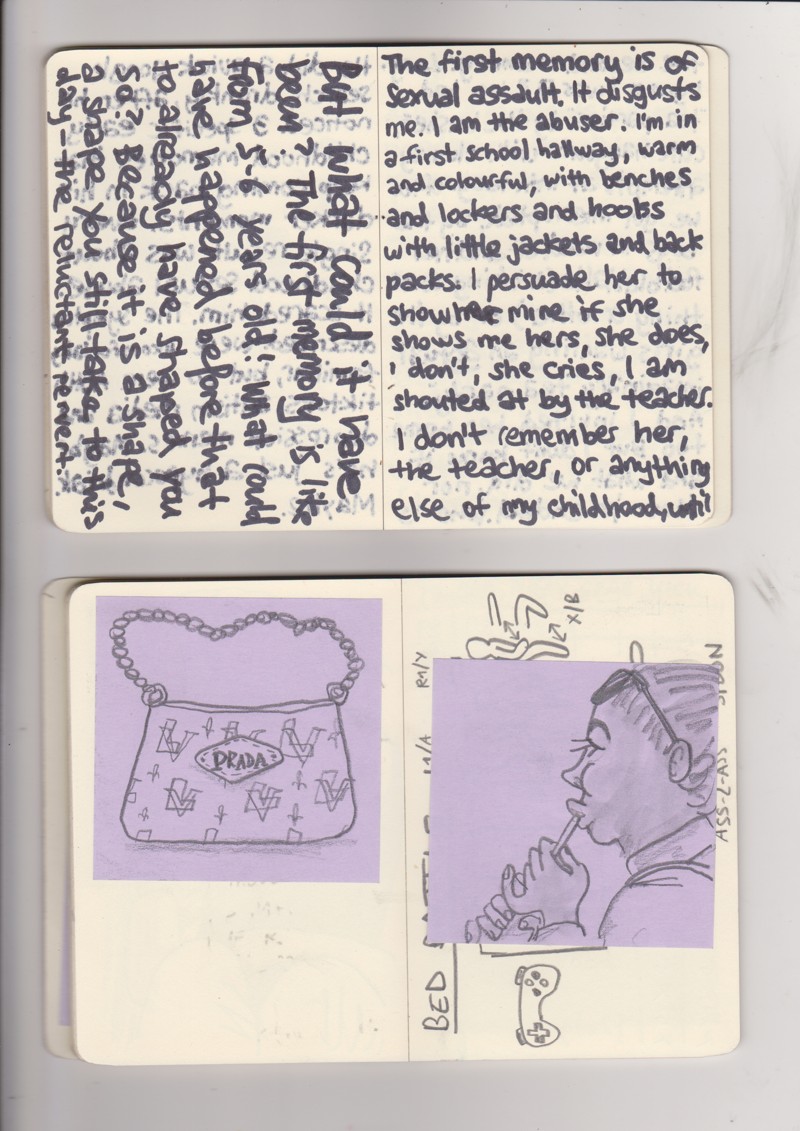 But what could it have
been? The first memory is like
from 5-6 years old! What could
have happened before that
to already have shaped you
so? Because it is a shape,
a shape you still take to this
day – the reluctant revert.
The first memory is of
sexual assault. It disgusts
me. I am the abuser. I'm in
a first school hallway, warm
and colourful, with benches
and lockers and hoobs
with little jackets and back
packs. I persuade her to
show her mine if she
shows me hers, she does,
I don't, she cries, I am
shouted at by the teacher.
I don't remember her,
the teacher, or anything
else of my childhood, until
DRADA
BED
M/A
X/B
ASS-2-ASS